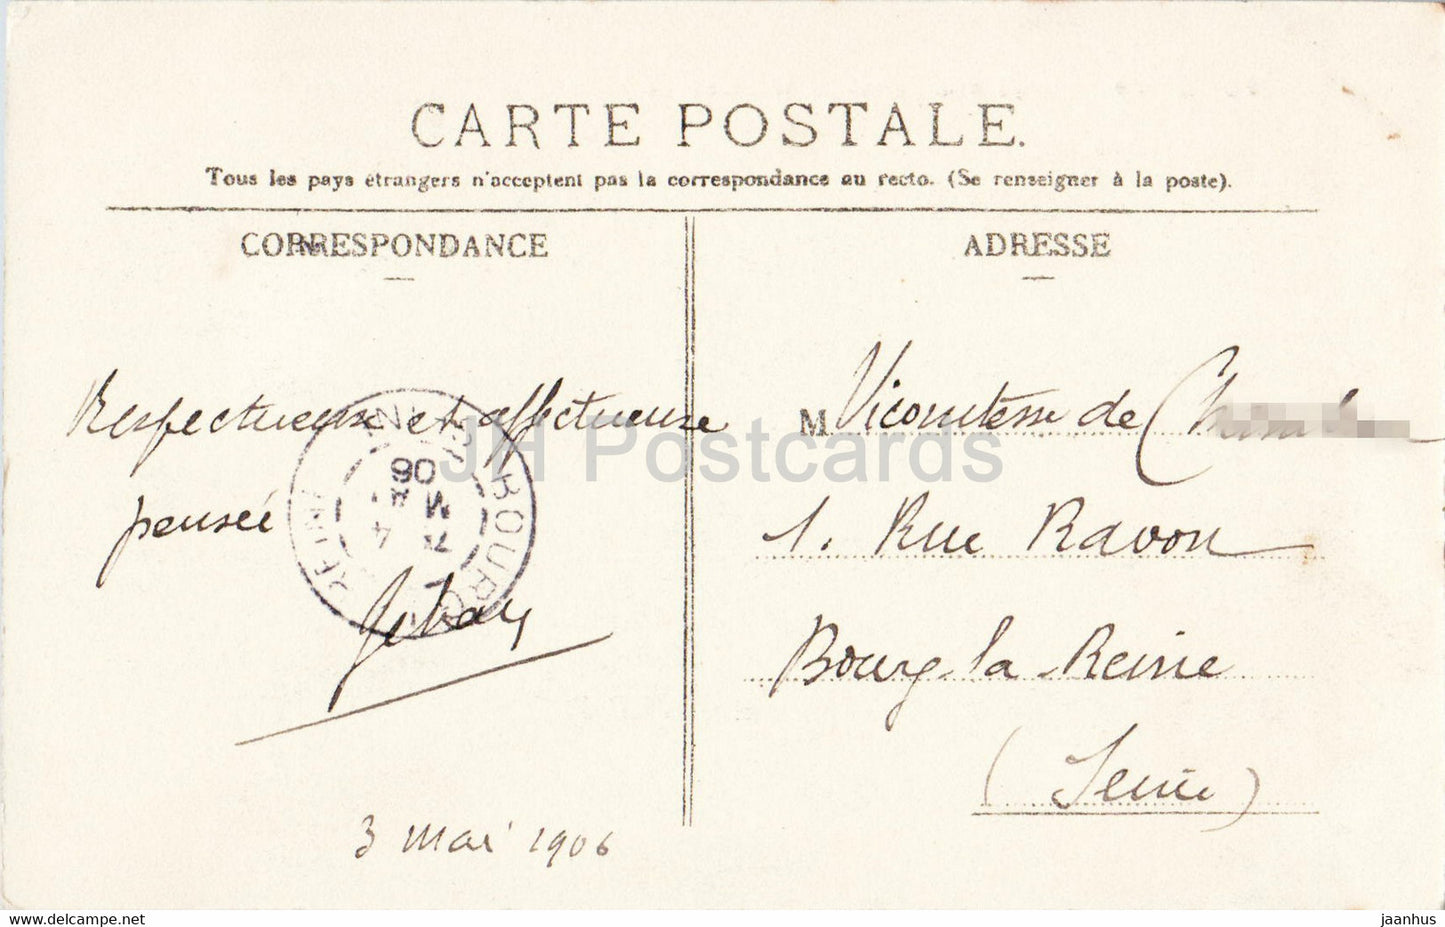 CARTE POSTALE.
Tous les pays étrangers n'acceptent pas la correspondance au recto. (Se renseigner à la poste).
CORRESPONDANCE
ADRESSE
Respectueuse et affectueuse
pensée
3 mai 1906
M Vicomtesse de
1. Rue Ravon
Bourg-la-Reine
(Seine)
BOURG
REINE
06
JH Postcards
hippostcard.com
jaanhus